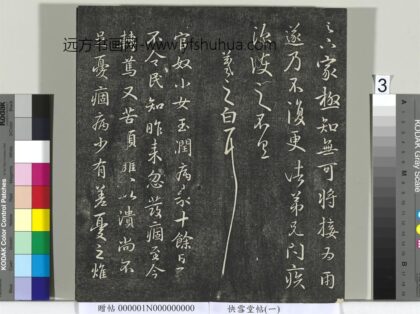 远方书画网-www.yfshuhua.com
家極知無可將接為雨
遂乃不復更諸弟兄問疾
深護之不具
羲之白
官奴小女玉潤病來十餘日了
不令民知昨來忽發痼至今
轉篤又苦頭癰以潰尚不
足憂痼病少有差憂之燋
3
KODAK Color Control Patches
KODAK Gray Scale
贈帖 000001N000000000
快雪堂帖(一)